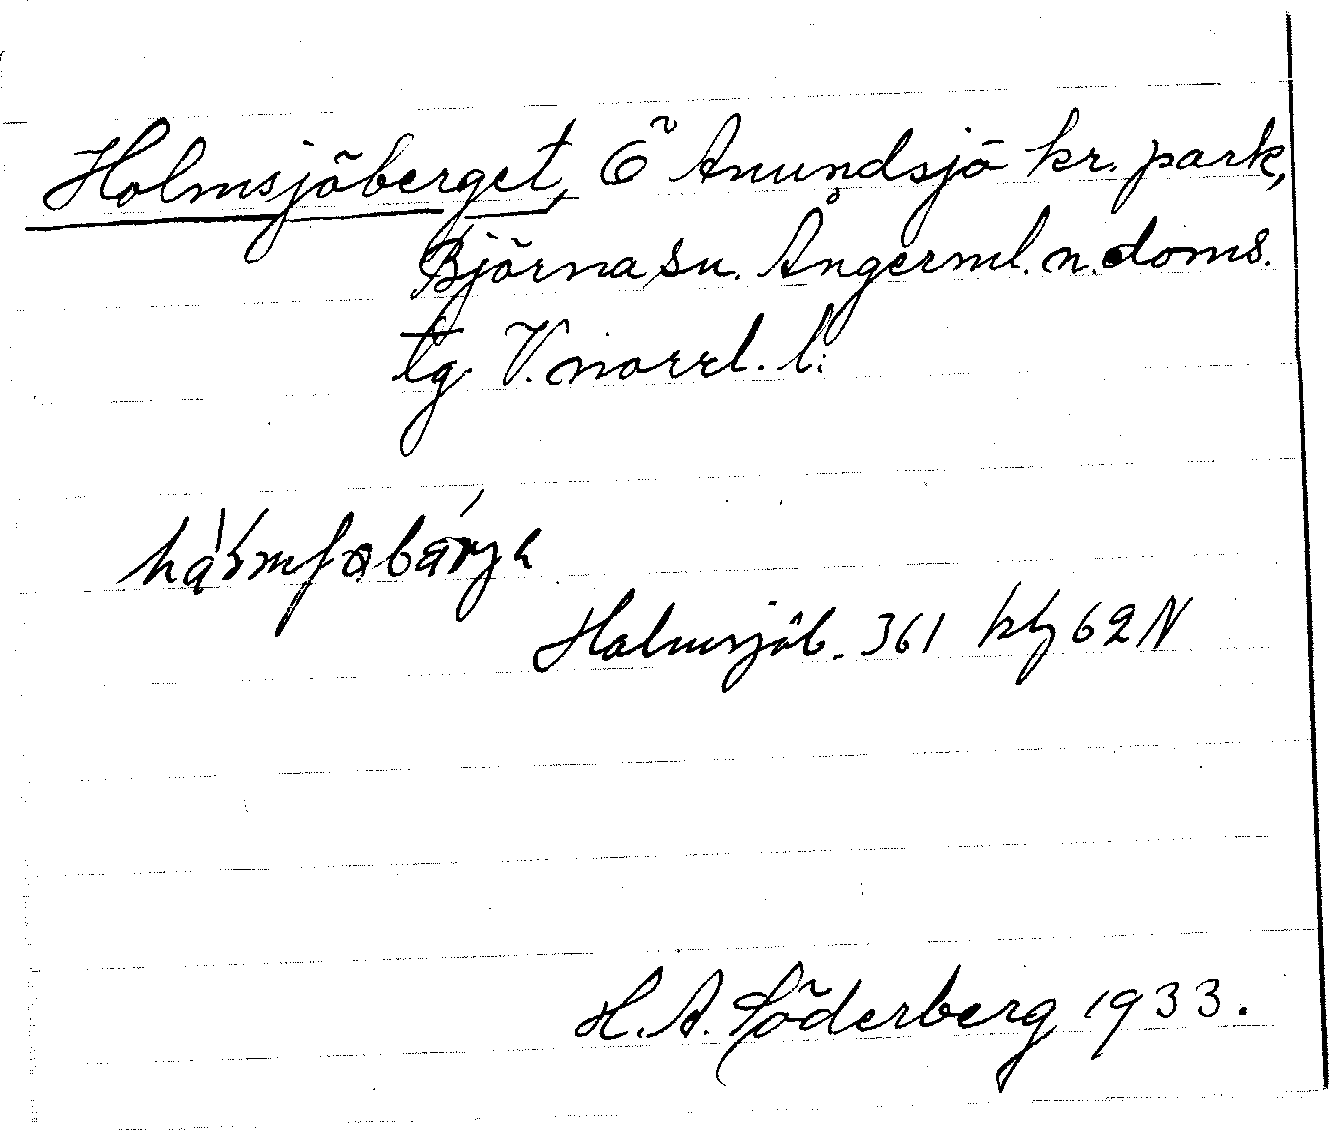 Holmsjöberget, Ö Anundsjö kr. park,
Björna sn. Ångerml. n. doms.
tg V. norrl. l:
Holmsjöb. 361 kbj 62 N
H. A. Söderberg 1933.